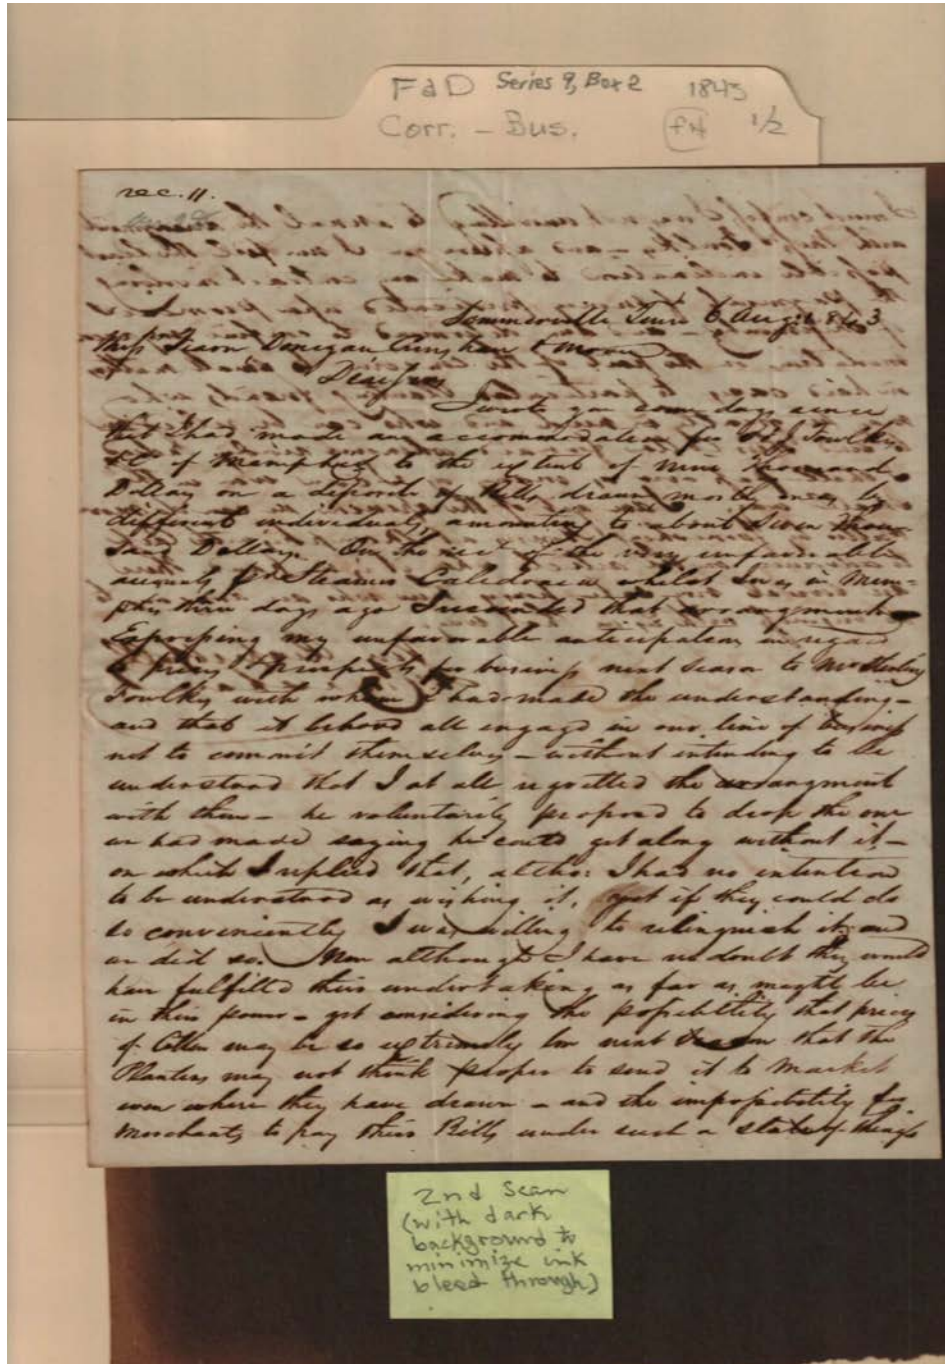 F&D Series 9, Box 2 1843
Corr. – Bus. fN 1/2
rec. 11.
Sommerville Tenn 6 Aug 1843
Mess Fearn Donegan
Dear Sirs
I wrote you some days since
that I had made an accommodation for Fowlkes
& Co of Memphis to the extent of nine thousand
Dollars on a deposite of Bills drawn mostly by
different individuals, amounting to about seven Thou-
sand Dollars. On the rect of the very unfavorable
accounts pr Steamer Caledonia whilst I was in Mem-
phis three days ago I that arrangment
Expressing my unfavorable anticipations in regard
to prices & prospects for business next season to Mr
Fowlkes with whom I had made the understanding –
and that it behoved all engaged in our line of business
not to commit themselves – without intending to be
understood that I at all regretted the arrangment
with them – he voluntarily proposed to drop the one
we had made saying he could get along without it –
on which I replied that, altho: I had no intention
to be understood as wishing it, yet if they could do
so conveniently I was willing to relinquish it and
we did so. Now although I have no doubt they would
have fulfilled their undertaking as far as might be
in their power – yet considering the possibility that prices
of Cotton may be so extremely low next season that the
Planters may not think proper to send it to market
even where they have drawn – and the impossibility for
Merchants to pay their Bills under such a state of things
2nd scan
(with dark
background to
minimize ink
bleed through)